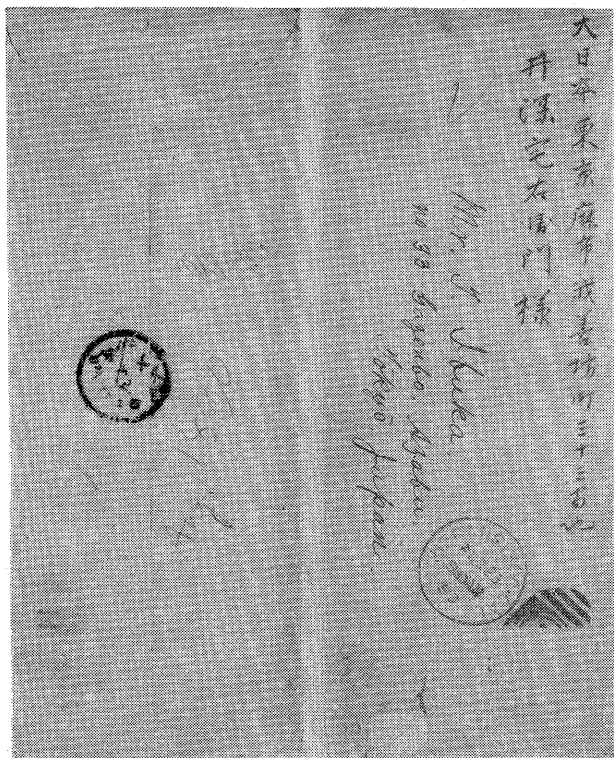 大日本東京麻布我善坊町三十三番地
井深宅右衛門様
Mr. T. Ibuka
No 33 Gazenbo. Azabu
Tokyo. Japan.